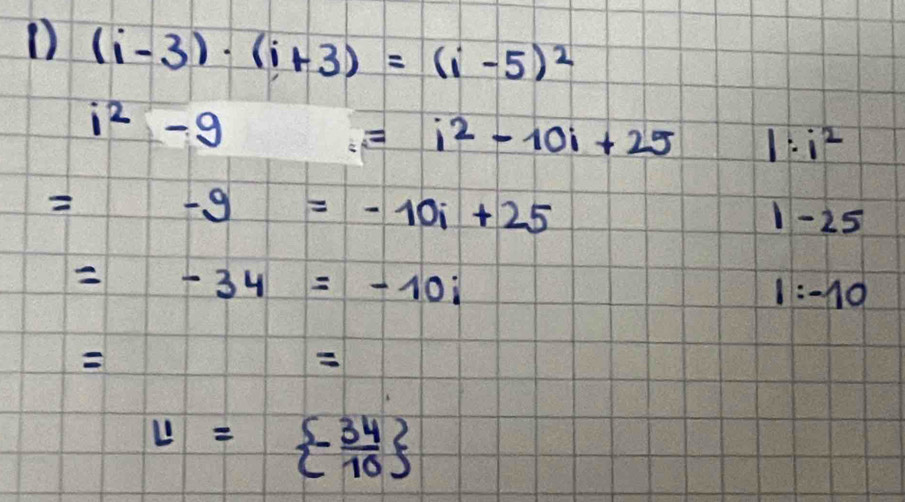 1) (i-3) · (i+3) = (i-5)²
i² -9 = i² - 10i + 25 | : i²
= -9 = - 10i + 25 | - 25
= - 34 = - 10i | : -10
= =
𝕃 = {- 34/10}